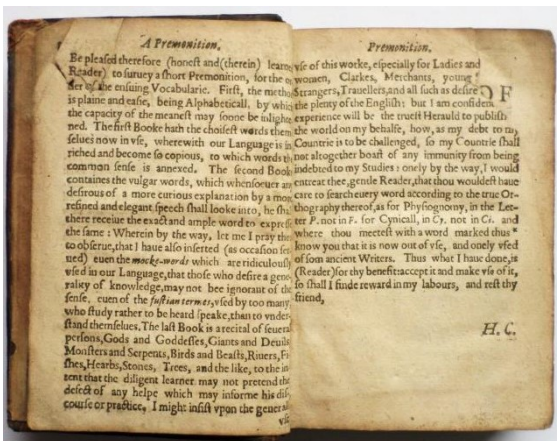 A Premonition.
Be pleased therefore (honest and (therein) learned
Reader) to suruey a short Premonition, for the or
der of the ensuing Vocabularie. First, the metho
is plaine and easie, being Alphabeticall, by which
the capacity of the meanest may soone be inlighte
ned. The first Booke hath the choisest words them
selues now in vse, wherewith our Language is in
riched and become so copious, to which words th
common sense is annexed. The second Book
containes the vulgar words, which whensoeuer any
desirous of a more curious explanation by a more
refined and elegant speech shall looke into, he shal
there receiue the exact and ample word to expresse
the same: Wherein by the way, let me I pray thee
to obserue, that I haue also inserted (as occasion ser
ued) euen the mocke-words which are ridiculously
vsed in our Language, that those who desire a gene
rality of knowledge, may not bee ignorant of the
sense, euen of the fustian termes, vsed by too many
who study rather to be heard speake, than to vnder-
stand themselues. The last Book is a recital of seueral
persons, Gods and Goddesses, Giants and Deuils
Monsters and Serpents, Birds and Beasts, Riuers, Fi
shes, Hearbs, Stones, Trees, and the like, to the in
tent that the diligent learner may not pretend the
defect of any helpe which may informe his dis
course or practice, I might insist vpon the generall
vse
Premonition.
vse of this worke, especially for Ladies and
women, Clarkes, Merchants, young
Strangers, Trauellers, and all such as desire
the plenty of the English: but I am confident
experience will be the truest Herauld to publish
the world on my behalfe, how, as my debt to my
Countrie is to be challenged, so my Countrie shall
not altogether boast of any immunity from being
indebted to my Studies: onely by the way, I would
entreat thee, gentle Reader, that thou wouldest haue
care to search euery word according to the true Or-
thography thereof, as for Physiognomy, in the Let-
ter P. not in F. for Cynicall, in Cy, not in Ci. and
where thou meetest with a word marked thus *
know you that it is now out of vse, and onely vsed
of som ancient Writers. Thus what I haue done, is
(Reader) for thy benefit: accept it and make vse of it,
so shall I finde reward in my labours, and rest thy
friend,
H. C.
OF